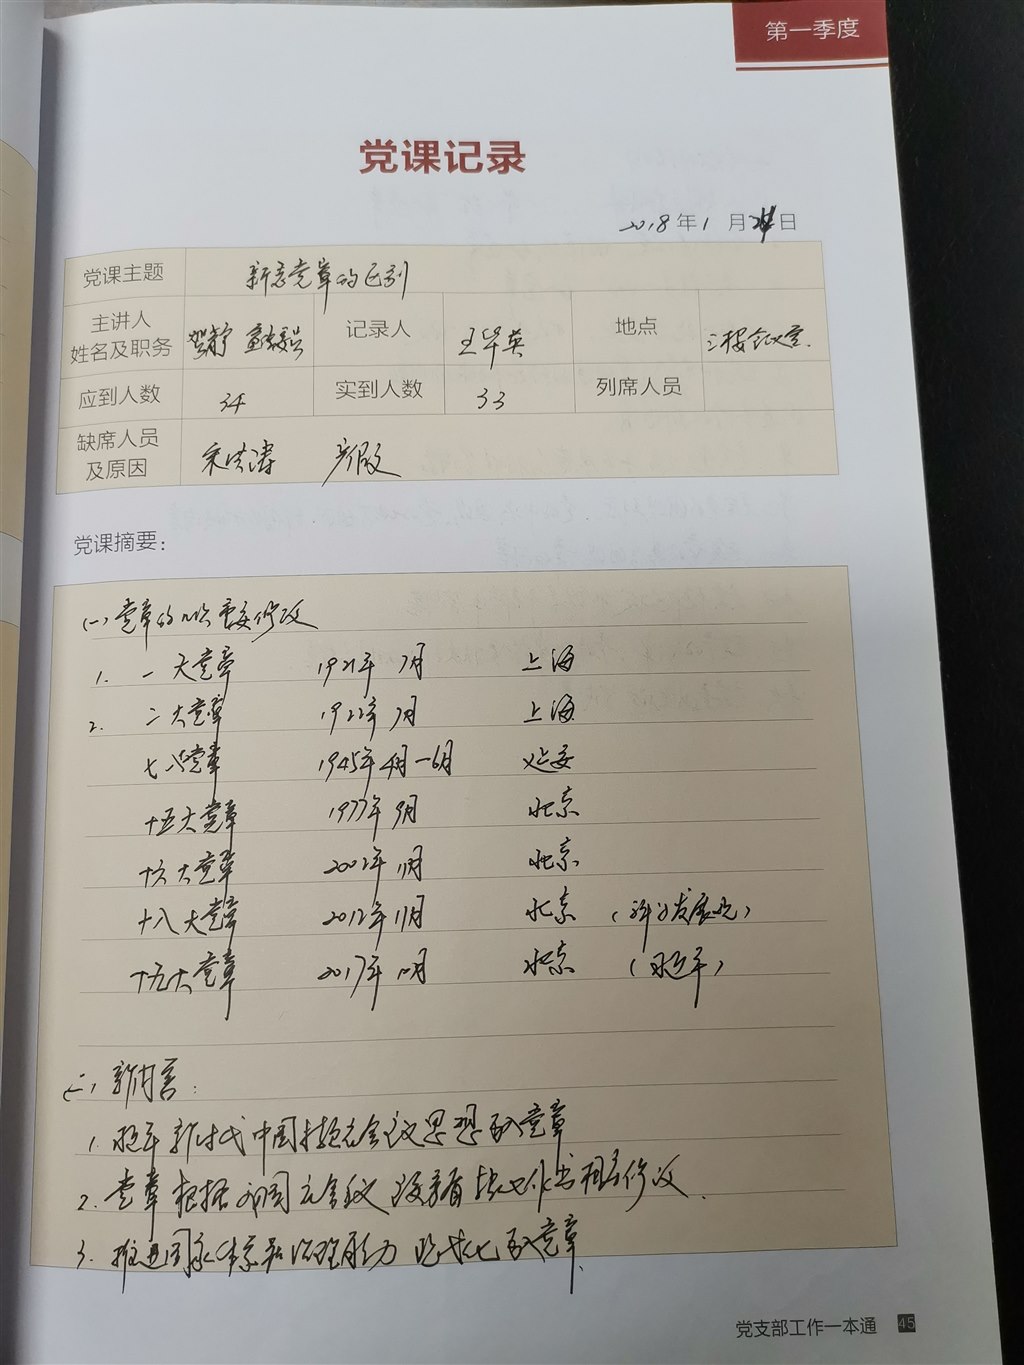 第一季度
党课记录
2018年1月日
党课主题 新老党章的区别
主讲人
姓名及职务
记录人 王华英
地点 三楼会议室.
应到人数 34 实到人数 33 列席人员
缺席人员
及原因
产假
党课摘要：
(一)党章的 重要修改
1. 一大党章 1921年7月 上海
2. 二大党章 1922年7月 上海
七大党章 1945年4月—6月 延安
十五大党章 1977年9月 北京
十六大党章 2002年11月 北京
十八大党章 2012年11月 北京 (科学发展观)
十九大党章 2017年10月 北京 (习近平)
二、新内容：
1. 习近平新时代中国特色社会主义思想 党章
2. 党章根据 中国 修改.
3. 推进国家体系和治理能力现代化 党章.
党支部工作一本通 45